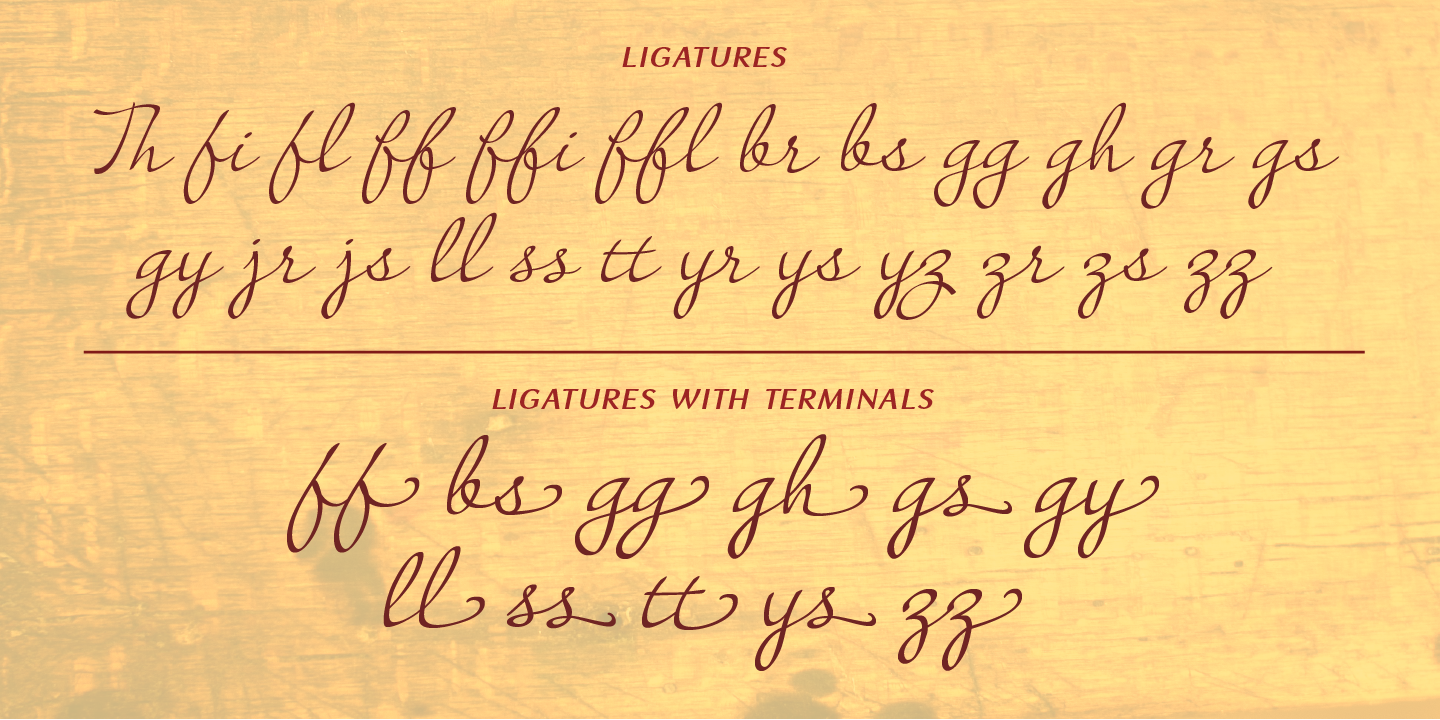 LIGATURES
Th fi fl ff ffi ffl br bs gg gh gr gs
gy jr js ll ss tt yr ys yz zr zs zz
LIGATURES WITH TERMINALS
ff bs gg gh gs gy
ll ss tt ys zz